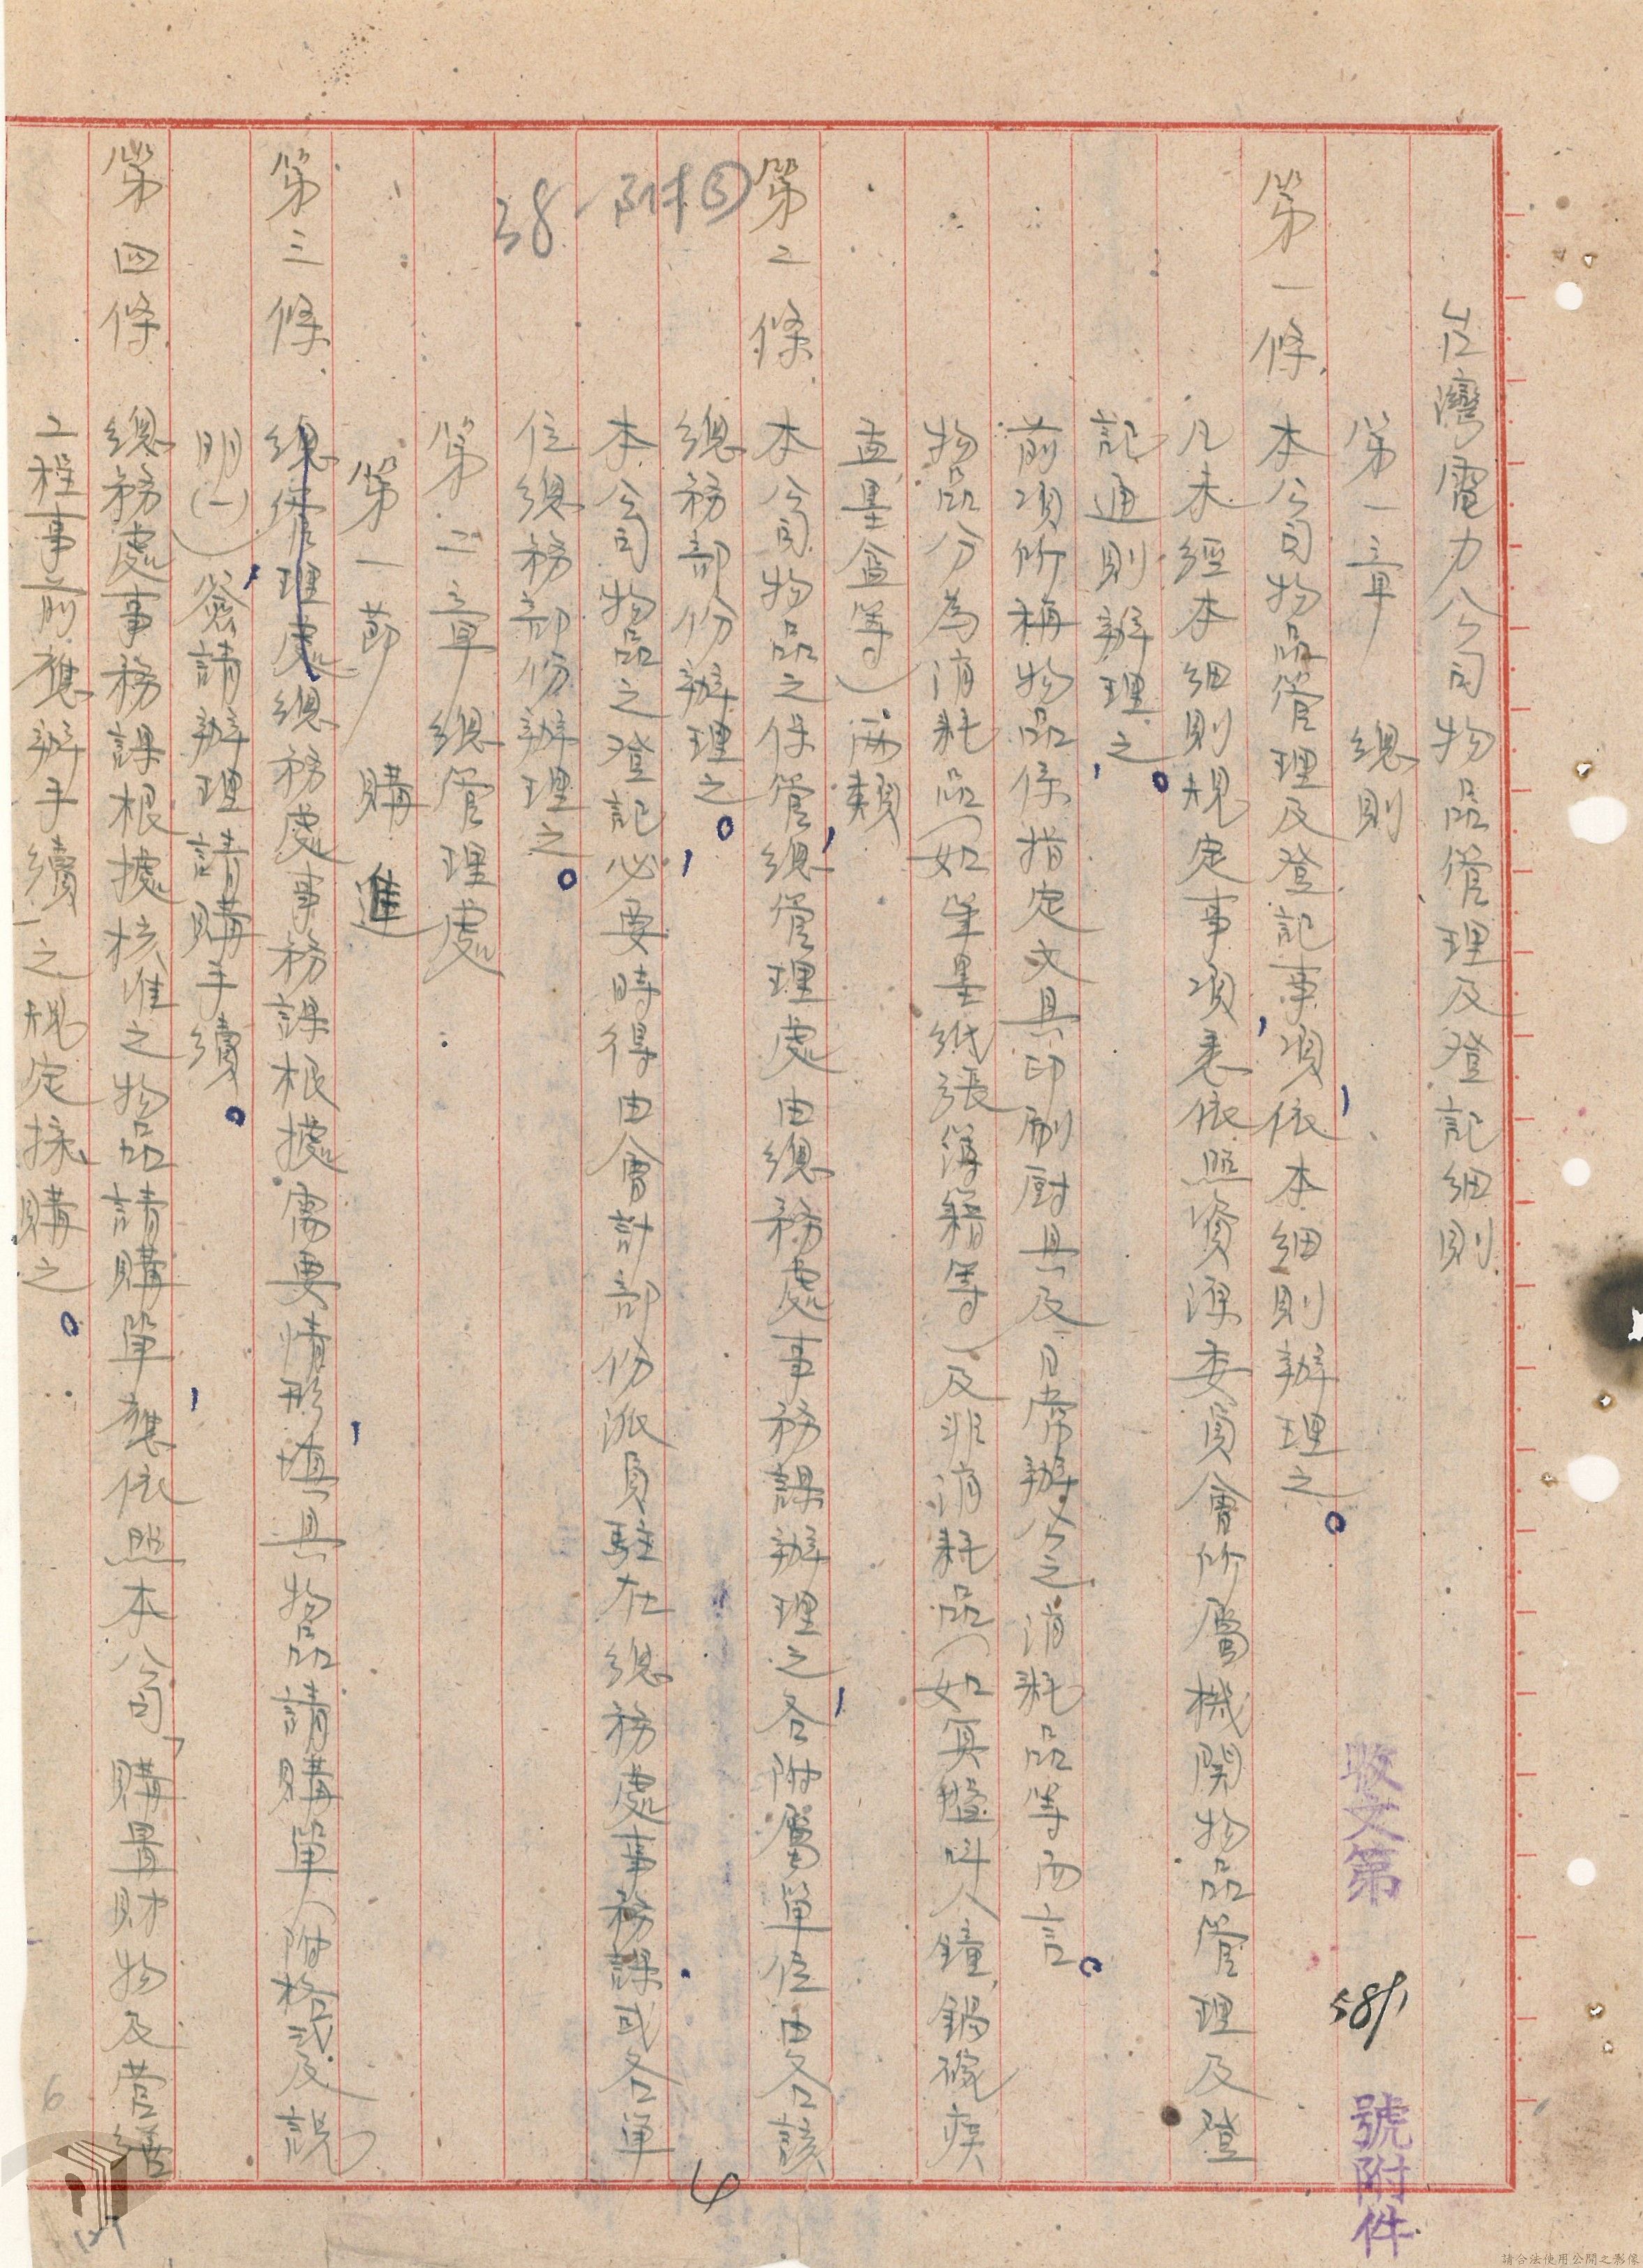 台灣電力公司物品管理及登記細則
第一章　總則
第一條　本公司物品管理及登記事項依本細則辦理之。
凡未經本細則規定事項悉依照資源委員會所屬機関物品管理及登
記通則辦理之。
前項所稱物品係指定文具印刷厨具及日常辦公之消耗品等而言。
物品分為消耗品（如筆墨紙張簿籍等）及非消耗品（如算盤叫人鐘，鍋碗
墨盒等）兩類
第二條　本公司物品之保管，總管理處由總務處事務課辦理之，各附屬單位由各該
總務部份辦理之。
本公司物品之登記，必要時得由會計部份派員駐在總務處事務課或各單
位總務部份辦理之。
第二章　總管理處
第一節　購進
第三條　總管理處總務處事務課根據需要情形，填具物品請購單（附格式及說
明(一)），簽請辦理請購手續。
第四條　總務處事務課根據核准之物品請購單，應依照本公司「購置財物及營繕
工程事前應辦手續」之規定採購之。
附⑤
38
收文第 581 號附件
6
請合法使用公開之影像